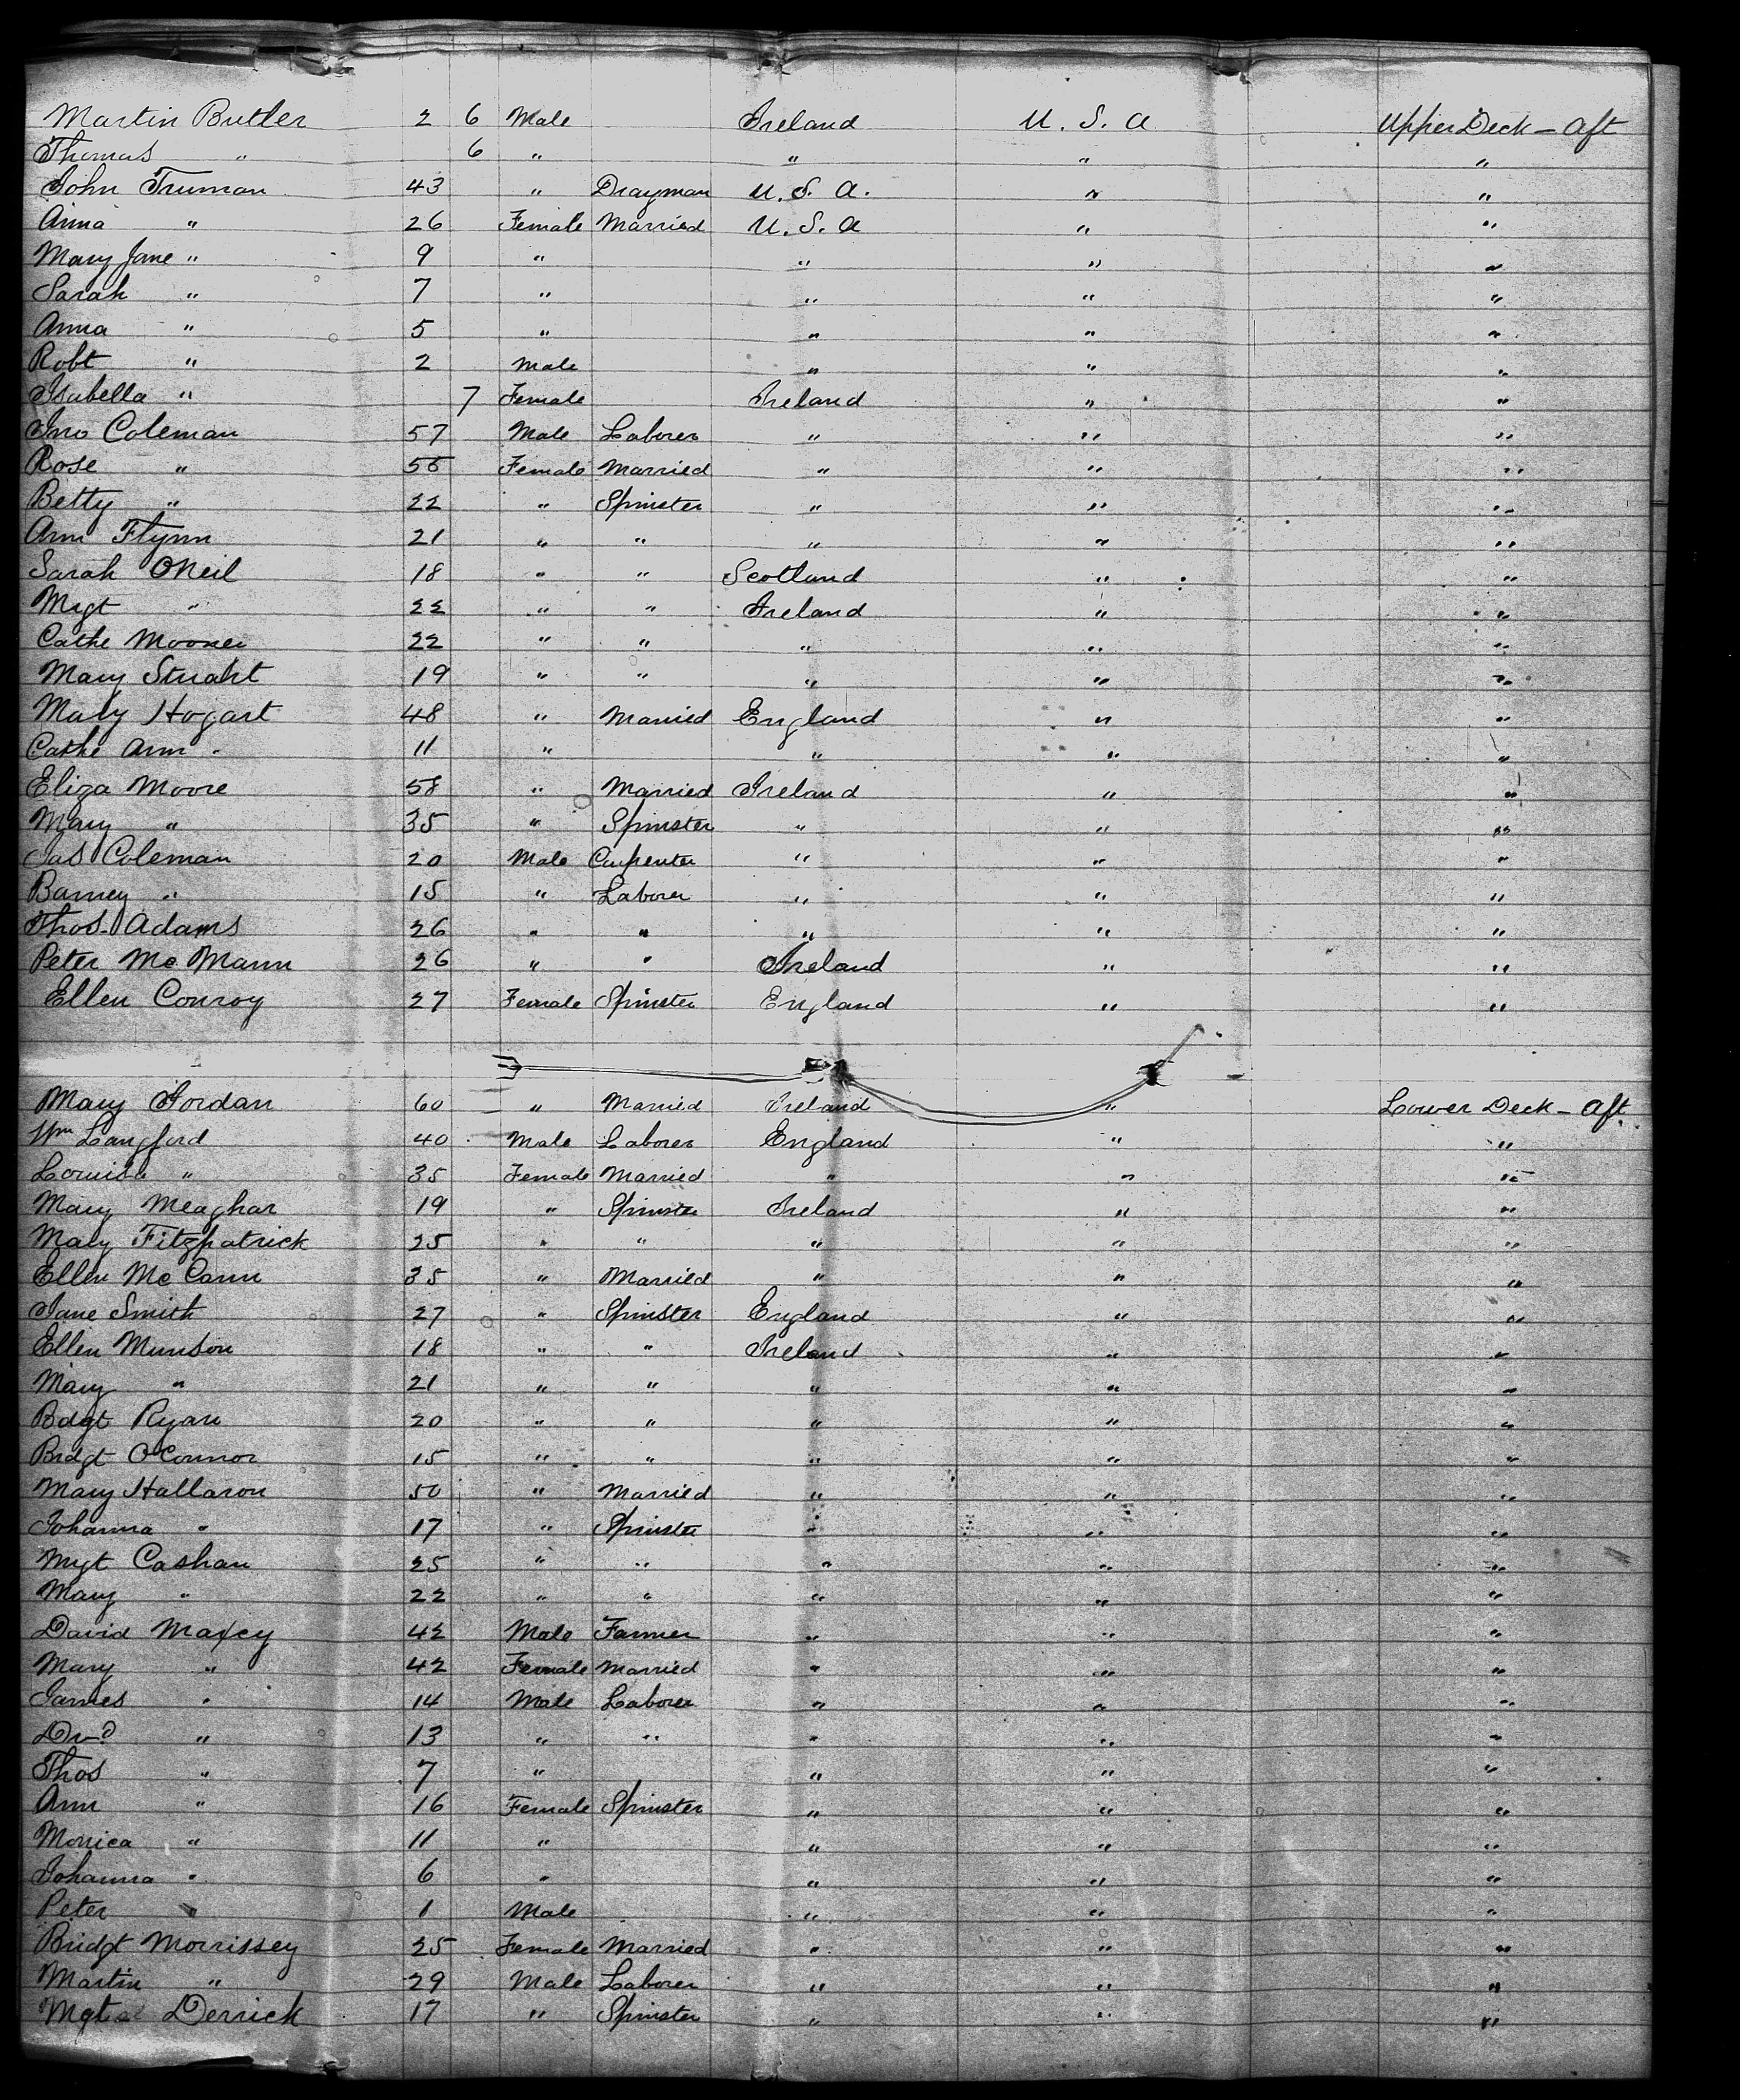 Martin Butler 2 6 Male Ireland U. S. A Upper Deck - Aft
Thomas " 6 " " " "
John Truman 43 " Drayman U. S. A. " "
Anna " 26 Female Married U. S. A " "
Mary Jane " 9 " " " "
Sarah " 7 " " " "
Anna " 5 " " " "
Robt " 2 Male " " "
Isabella " 7 Female Ireland " "
Jno Coleman 57 Male Laborer " " "
Rose " 56 Female Married " " "
Betty " 22 " Spinster " " "
Ann Flynn 21 " " " " "
Sarah ONeil 18 " " Scotland " "
Mrgt " 22 " " Ireland " "
Cathe Mooney 22 " " " " "
Mary Stuart 19 " " " " "
Mary Hogart 48 " Married England " "
Cathe Ann " 11 " " " "
Eliza Moore 58 " Married Ireland " "
Mary " 35 " Spinster " " "
Jas Coleman 20 Male Carpenter " " "
Barney " 15 " Laborer " " "
Thos. Adams 26 " " " " "
Peter Mc Mann 26 " " Ireland " "
Ellen Conroy 27 Female Spinster England " "
Mary Jordan 60 " Married Ireland " Lower Deck - Aft
Wm Langford 40 Male Laborer England " "
Louisa " 35 Female Married " " "
Mary Meaghar 19 " Spinster Ireland " "
Mary Fitzpatrick 25 " " " " "
Ellen Mc Cann 35 " Married " " "
Jane Smith 27 " Spinster England " "
Ellen Munson 18 " " Ireland " "
Mary " 21 " " " " "
Bdgt Ryan 20 " " " " "
Bridgt O'Connor 15 " " " " "
Mary Hallaron 50 " Married " " "
Johanna " 17 " Spinster " " "
Mgt Cashan 25 " " " " "
Mary " 22 " " " " "
David Maxcy 42 Male Farmer " " "
Mary " 42 Female Married " " "
James " 14 Male Laborer " " "
Dvd " 13 " " " " "
Thos " 7 " " " "
Ann " 16 Female Spinster " " "
Monica " 11 " " " "
Johanna " 6 " " " "
Peter " 1 Male " " "
Bridgt Morrissey 25 Female Married " " "
Martin " 29 Male Laborer " " "
Mgt Derrick 17 " Spinster " " "